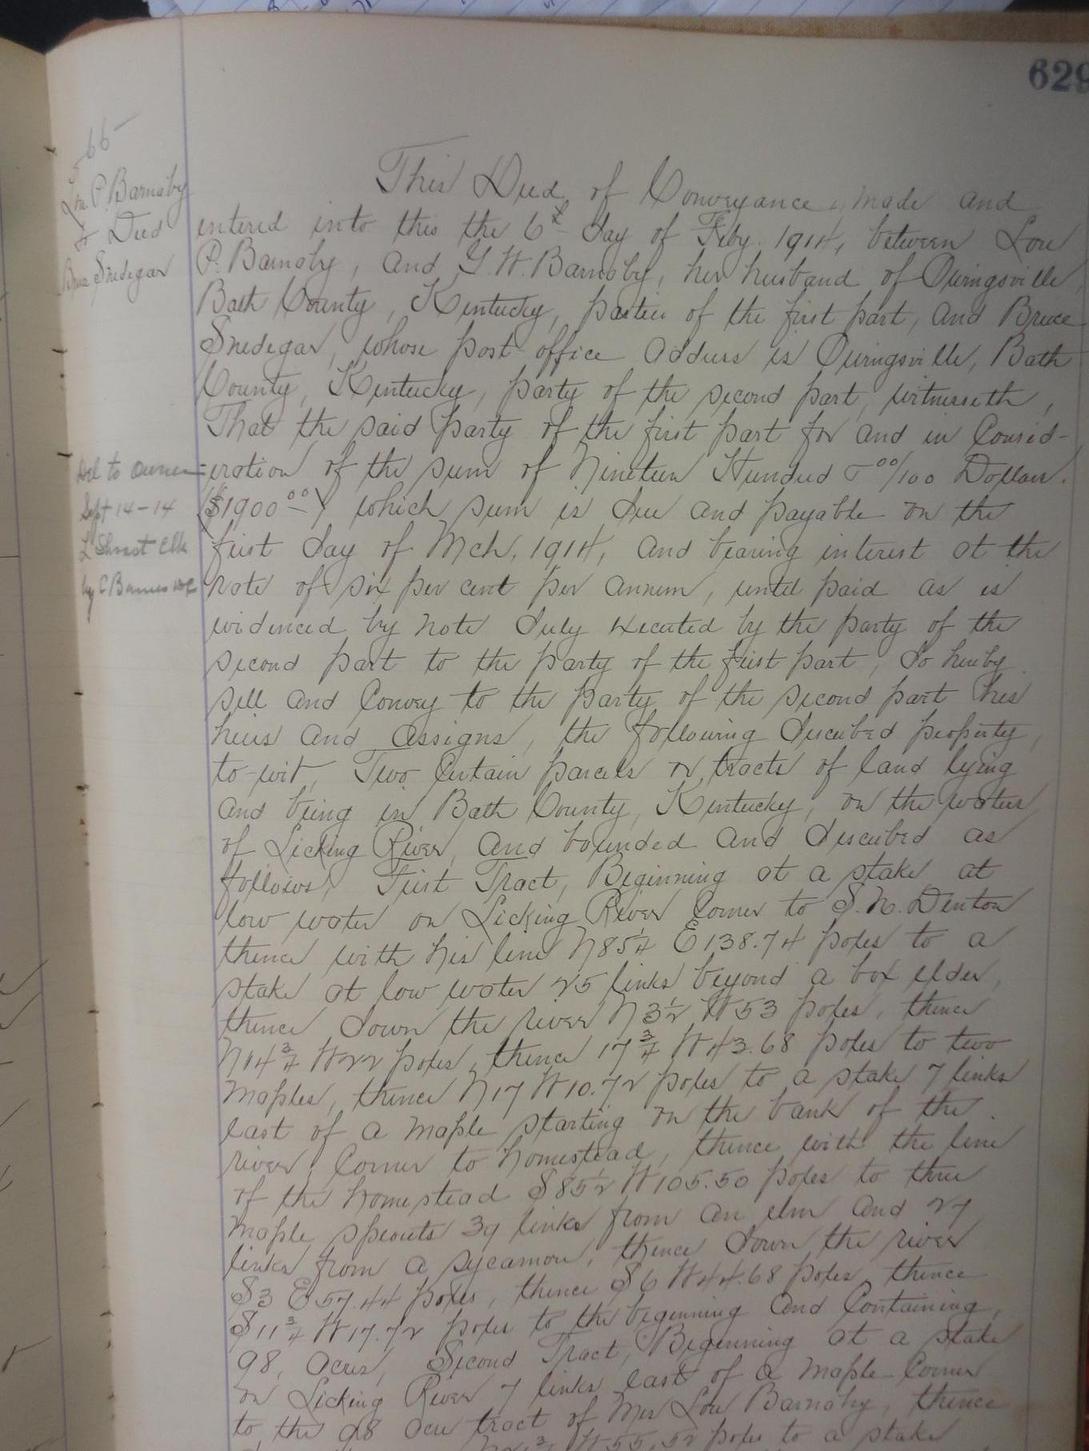 629
566
Lou P. Barnaby
to Deed
Bruce Snedegar
This Deed of Conveyance, made and
entered into this the 6th day of Feby. 1914, between Lou
P. Barnaby, and G. W. Barnaby, her husband of Owingsville,
Bath County, Kentucky, parties of the first part, and Bruce
Snedegar, whose post office address is Owingsville, Bath
County, Kentucky, party of the second part, witnesseth,
That the said party of the first part for and in Consid-
Del to owner
eration of the sum of Nineteen Hundred 00/100 Dollars.
Sept 14-14
($1900.00) which sum is due and payable on the
Clk
first day of Mch, 1914, and bearing interest at the
by C Barnes DC
rate of six per cent per annum, until paid as is
evidenced by note duly executed by the party of the
second part to the party of the first part, do hereby
sell and Convey to the party of the second part his
heirs and assigns, the following described property,
to-wit, Two Certain parcels or tracts of land lying
and being in Bath County, Kentucky, on the waters
of Licking River, and bounded and described as
follows, First Tract, Beginning at a stake at
low water on Licking River Corner to S. N. Denton
thence with his line N85 1/4 E138.74 poles to a
stake at low water 25 links beyond a box elder,
thence down the river N3 1/2 W53 poles, thence
N14 3/4 W22 poles, thence 17 3/4 W43.68 poles to two
Maples, thence N17 W10.72 poles to a stake 7 links
East of a Maple starting on the bank of the
river, Corner to homestead, thence with the line
of the homestead S85 1/2 W105.50 poles to three
Maple sprouts 39 links from an elm and 27
links from a sycamore, thence down the river
S3 E57.44 poles, thence S6 W44.68 poles, thence
S11 3/4 W17.72 poles to the beginning and Containing,
98, acres, Second Tract, Beginning at a stake
on Licking River 7 links east of a Maple Corner
to the 98 acre tract of Mrs Lou Barnaby, thence
W55.52 poles to a stake